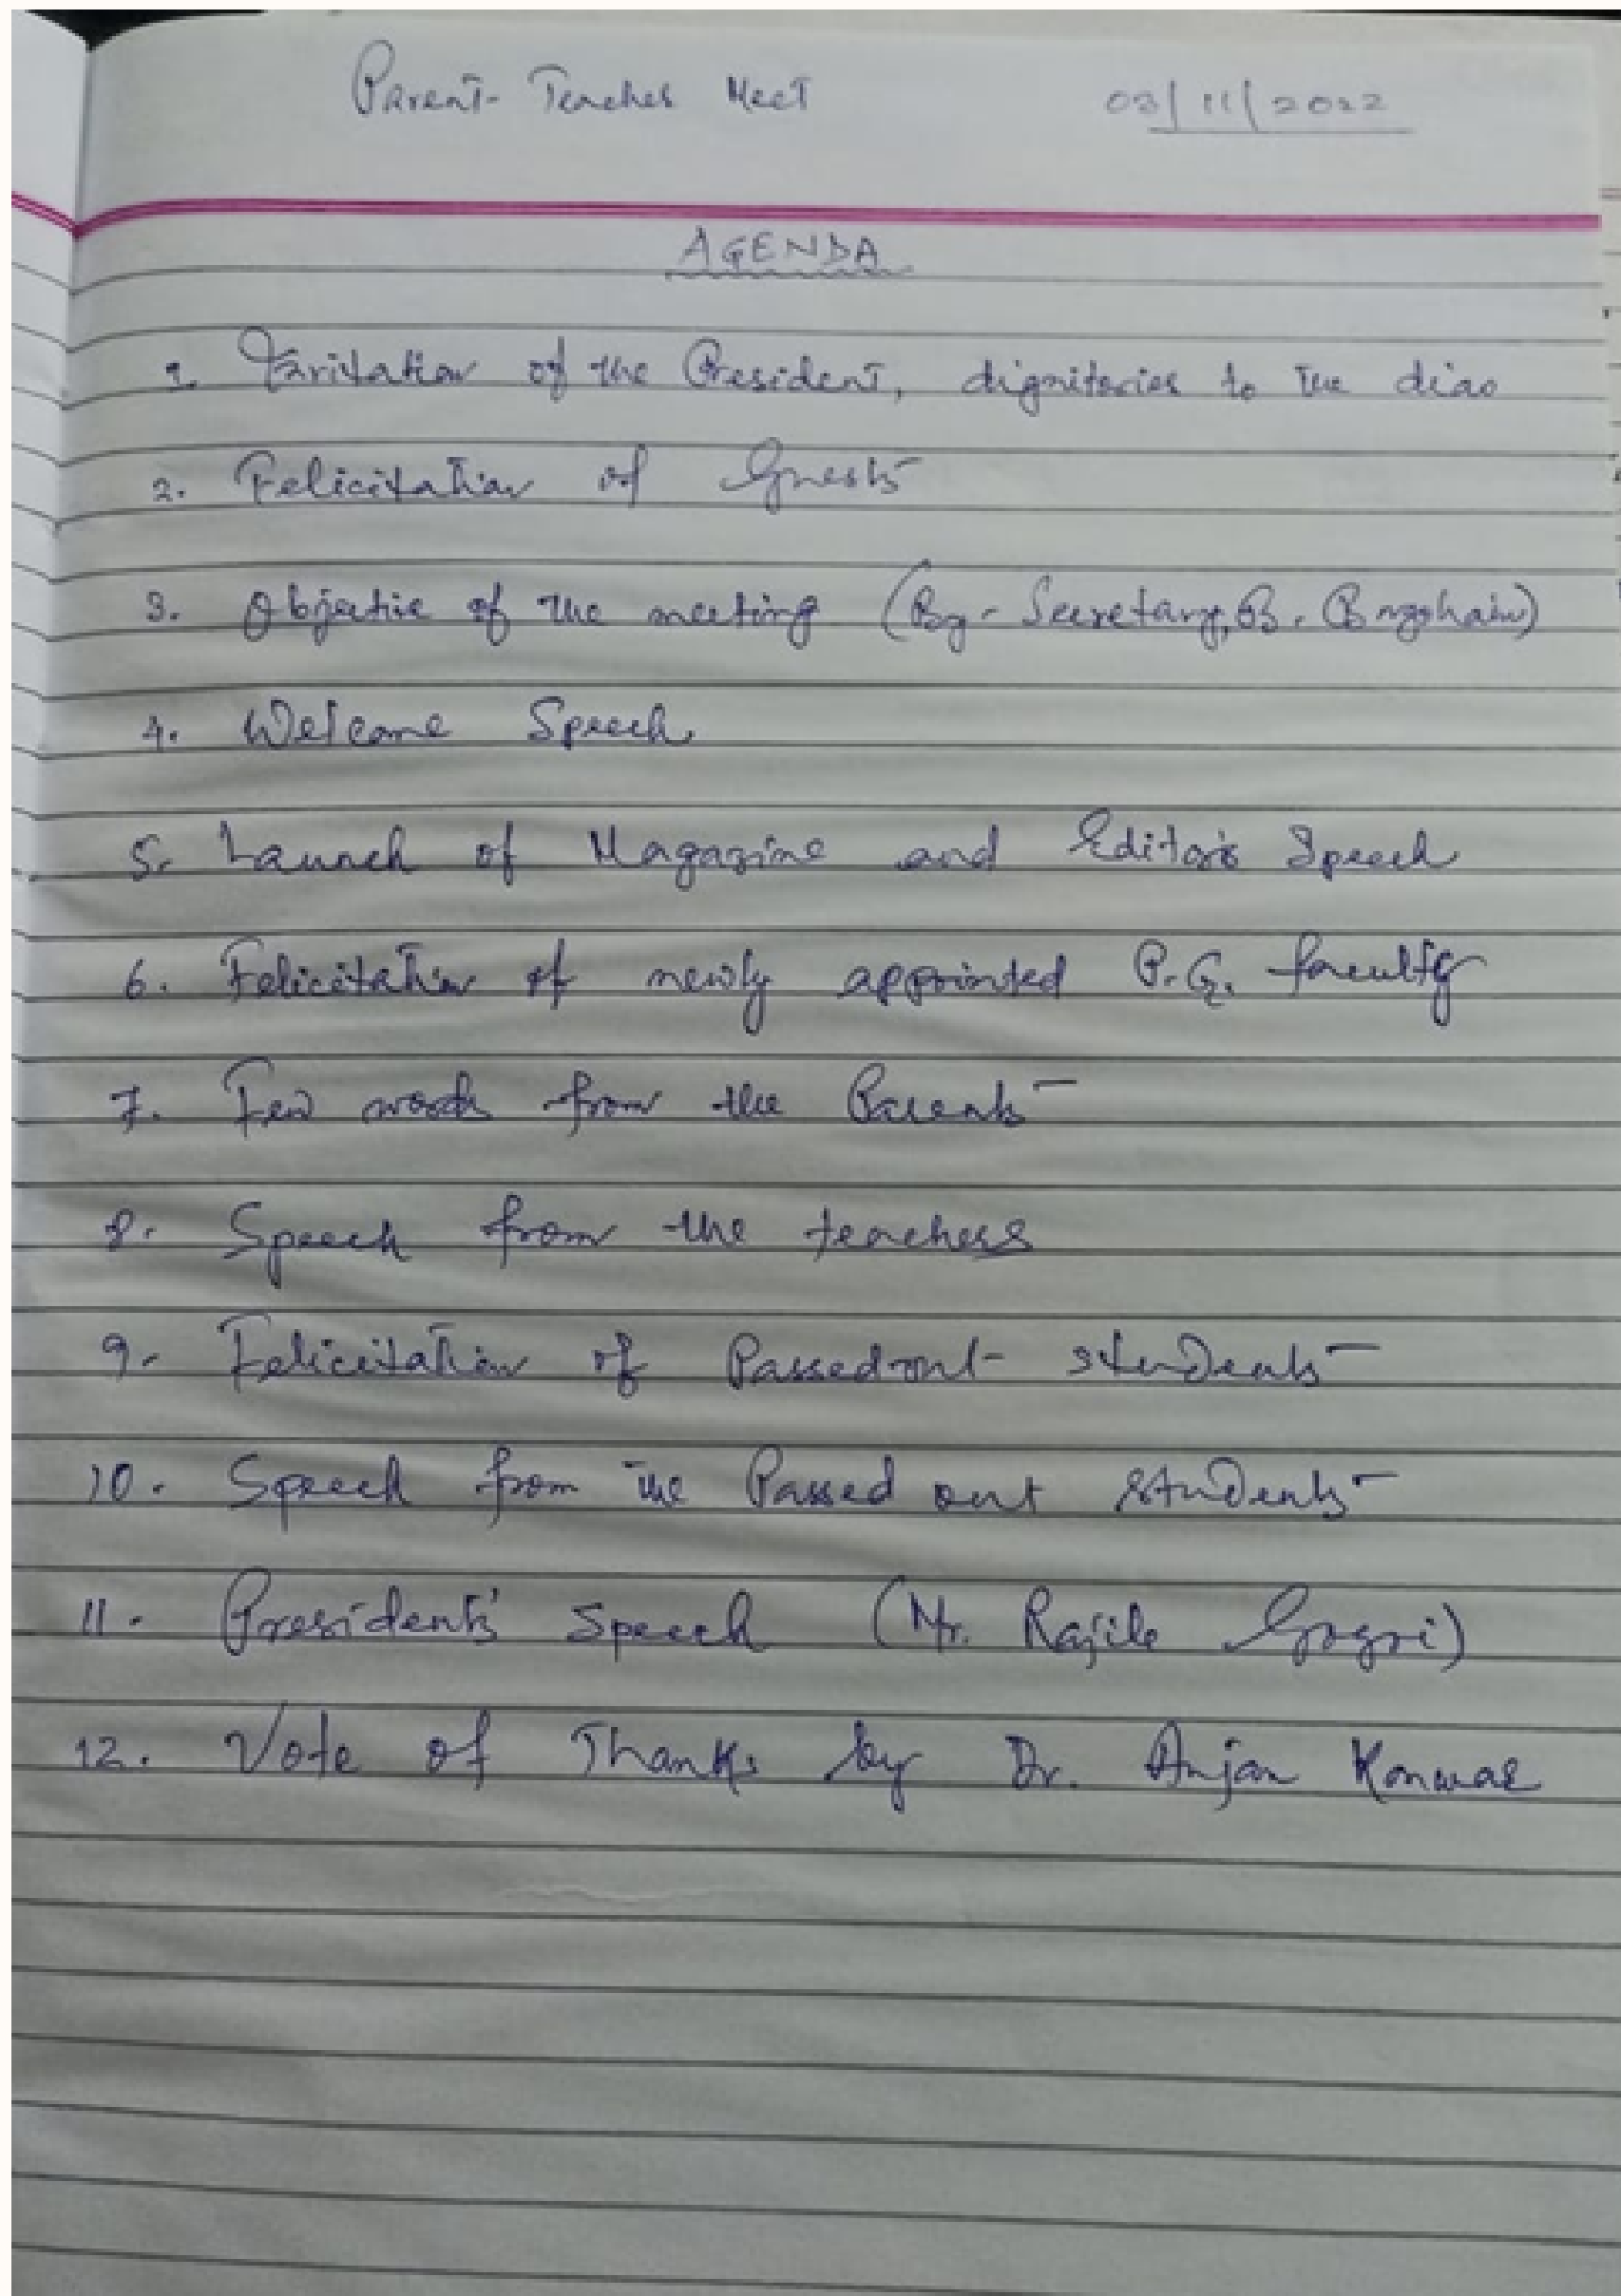 Parent-Teacher Meet 03/11/2022
AGENDA
1. Invitation of the President, dignitories to the dias
2. Felicitation of Guests
3. Objective of the meeting (By- Secretary, B.
4. Welcome Speech.
5. Launch of Magazine and Editor's Speech
6. Felicitation of newly appointed P.G. faculty
7. Few words from the Parents
8. Speech from the teachers
9. Felicitation of Passed-out students
10. Speech from the Passed out students
11. President's Speech (Mr. Gogoi)
12. Vote of Thanks by Dr. Anjan Konwar